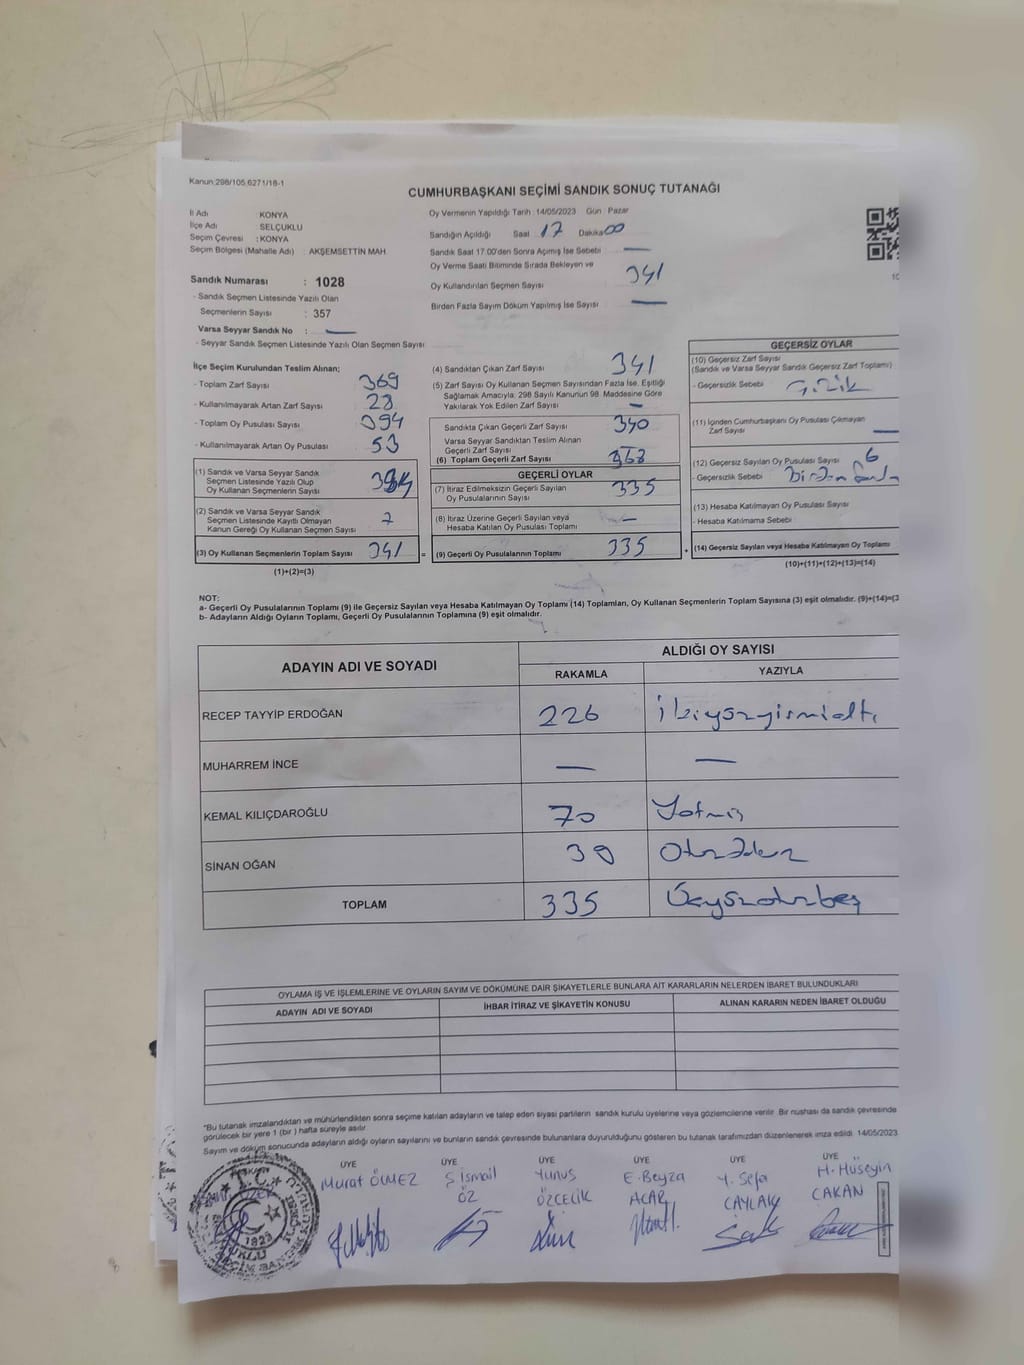 Kanun:298/105,6271/18-1
CUMHURBAŞKANI SEÇİMİ SANDIK SONUÇ TUTANAĞI
İl Adı KONYA
İlçe Adı SELÇUKLU
Seçim Çevresi : KONYA
Seçim Bölgesi (Mahalle Adı) : AKŞEMSETTİN MAH.
Oy Vermenin Yapıldığı Tarih :14/05/2023 Gün : Pazar
Sandığın Açıldığı Saat 17 Dakika 00
Sandık Saat 17:00'den Sonra Açılmış İse Sebebi —
Oy Verme Saati Bitiminde Sırada Bekleyen ve
Oy Kullandırılan Seçmen Sayısı 341
Birden Fazla Sayım Döküm Yapılmış İse Sayısı —
Sandık Numarası : 1028
- Sandık Seçmen Listesinde Yazılı Olan
Seçmenlerin Sayısı : 357
Varsa Seyyar Sandık No : —
- Seyyar Sandık Seçmen Listesinde Yazılı Olan Seçmen Sayısı:
İlçe Seçim Kurulundan Teslim Alınan;
- Toplam Zarf Sayısı 369
- Kullanılmayarak Artan Zarf Sayısı 28
- Toplam Oy Pusulası Sayısı 394
- Kullanılmayarak Artan Oy Pusulası 53
(1) Sandık ve Varsa Seyyar Sandık
Seçmen Listesinde Yazılı Olup
Oy Kullanan Seçmenlerin Sayısı
(2) Sandık ve Varsa Seyyar Sandık
Seçmen Listesinde Kayıtlı Olmayan
Kanun Gereği Oy Kullanan Seçmen Sayısı 7
(3) Oy Kullanan Seçmenlerin Toplam Sayısı 341 =
(1)+(2)=(3)
(4) Sandıktan Çıkan Zarf Sayısı 341
(5) Zarf Sayısı Oy Kullanan Seçmen Sayısından Fazla İse, Eşitliği
Sağlamak Amacıyla; 298 Sayılı Kanunun 98. Maddesine Göre
Yakılarak Yok Edilen Zarf Sayısı —
Sandıkta Çıkan Geçerli Zarf Sayısı 340
Varsa Seyyar Sandıktan Teslim Alınan
Geçerli Zarf Sayısı
(6) Toplam Geçerli Zarf Sayısı
GEÇERLİ OYLAR
(7) İtiraz Edilmeksizin Geçerli Sayılan
Oy Pusulalarının Sayısı 335
(8) İtiraz Üzerine Geçerli Sayılan veya
Hesaba Katılan Oy Pusulası Toplamı —
(9) Geçerli Oy Pusulalarının Toplamı 335 +
GEÇERSİZ OYLAR
(10) Geçersiz Zarf Sayısı
(Sandık ve Varsa Seyyar Sandık Geçersiz Zarf Toplamı)
- Geçersizlik Sebebi
(11) İçinden Cumhurbaşkanı Oy Pusulası Çıkmayan
Zarf Sayısı —
(12) Geçersiz Sayılan Oy Pusulası Sayısı 6
- Geçersizlik Sebebi Birden fazla
(13) Hesaba Katılmayan Oy Pusulası Sayısı
- Hesaba Katılmama Sebebi
(14) Geçersiz Sayılan veya Hesaba Katılmayan Oy Toplamı
(10)+(11)+(12)+(13)=(14)
NOT:
a- Geçerli Oy Pusulalarının Toplamı (9) ile Geçersiz Sayılan veya Hesaba Katılmayan Oy Toplamı (14) Toplamları, Oy Kullanan Seçmenlerin Toplam Sayısına (3) eşit olmalıdır. (9)+(14)=(3
b- Adayların Aldığı Oyların Toplamı, Geçerli Oy Pusulalarının Toplamına (9) eşit olmalıdır.
ADAYIN ADI VE SOYADI ALDIĞI OY SAYISI
RAKAMLA YAZIYLA
RECEP TAYYİP ERDOĞAN 226 ikiyüzyirmialtı
MUHARREM İNCE — —
KEMAL KILIÇDAROĞLU 70 Yetmiş
SİNAN OĞAN 39 Otuzdokuz
TOPLAM 335 Üçyüzotuzbeş
OYLAMA İŞ VE İŞLEMLERİNE VE OYLARIN SAYIM VE DÖKÜMÜNE DAİR ŞİKAYETLERLE BUNLARA AİT KARARLARIN NELERDEN İBARET BULUNDUKLARI
ADAYIN ADI VE SOYADI İHBAR İTİRAZ VE ŞİKAYETİN KONUSU ALINAN KARARIN NEDEN İBARET OLDUĞU
"Bu tutanak imzalandıktan ve mühürlendikten sonra seçime katılan adayların ve talep eden siyasi partilerin sandık kurulu üyelerine veya gözlemcilerine verilir. Bir nushası da sandık çevresinde
görülecek bir yere 1 (bir) hafta süreyle asılır.
Sayım ve döküm sonucunda adayların aldığı oyların sayılarını ve bunların sandık çevresinde bulunanlara duyurulduğunu gösteren bu tutanak tarafımızdan düzenlenerek imza edildi. 14/05/2023
ÜYE ÜYE ÜYE ÜYE ÜYE ÜYE
Murat ÖLMEZ
İsmail ÖZ
Yunus ÖZÇELİK
E. Beyza ACAR
Y. Sefa ÇAYLAK
H. Hüseyin ÇAKAN
T.C.
1923